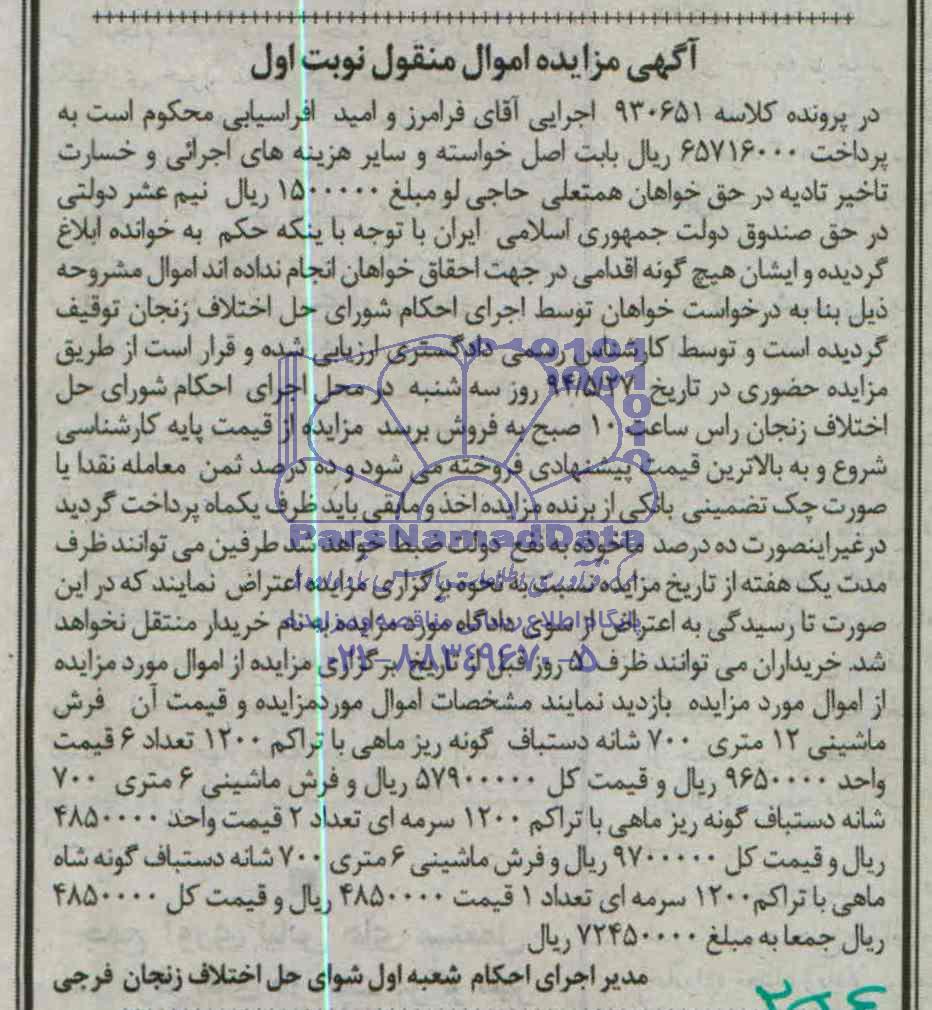 آگهی مزایده اموال منقول نوبت اول
در پرونده کلاسه ۹۳۰۶۵۱ اجرایی آقای فرامرز و امید افراسیابی محکوم است به
پرداخت ۶۵۷۱۶۰۰۰ ریال بابت اصل خواسته و سایر هزینه های اجرائی و خسارت
تاخیر تادیه در حق خواهان همتعلی حاجی لو مبلغ ۱۵۰۰۰۰۰ ریال نیم عشر دولتی
در حق صندوق دولت جمهوری اسلامی ایران با توجه با ینکه حکم به خوانده ابلاغ
گردیده و ایشان هیچ گونه اقدامی در جهت احقاق خواهان انجام نداده اند اموال مشروحه
ذیل بنا به درخواست خواهان توسط اجرای احکام شورای حل اختلاف زنجان توقیف
گردیده است و توسط کارشناس رسمی دادگستری ارزیابی شده و قرار است از طریق
مزایده حضوری در تاریخ ۹۴/۵/۲۷ روز سه شنبه در محل اجرای احکام شورای حل
اختلاف زنجان راس ساعت ۱۰ صبح به فروش برسد مزایده از قیمت پایه کارشناسی
شروع و به بالاترین قیمت پیشنهادی فروخته می شود و ده درصد ثمن معامله نقدا یا
صورت چک تضمینی بانکی از برنده مزایده اخذ و مابقی باید ظرف یکماه پرداخت گردید
درغیراینصورت ده درصد ماخوذه به نفع دولت ضبط خواهد شد طرفین می توانند ظرف
مدت یک هفته از تاریخ مزایده نسبت به نحوه برگزاری مزایده اعتراض نمایند که در این
صورت تا رسیدگی به اعتراض از سوی دادگاه مورد مزایده به نام خریدار منتقل نخواهد
شد. خریداران می توانند ظرف ۵ روز قبل از تاریخ برگزاری مزایده از اموال مورد مزایده
از اموال مورد مزایده بازدید نمایند مشخصات اموال موردمزایده و قیمت آن فرش
ماشینی ۱۲ متری ۷۰۰ شانه دستباف گونه ریز ماهی با تراکم ۱۲۰۰ تعداد ۶ قیمت
واحد ۹۶۵۰۰۰۰ ریال و قیمت کل ۵۷۹۰۰۰۰۰ ریال و فرش ماشینی ۶ متری ۷۰۰
شانه دستباف گونه ریز ماهی با تراکم ۱۲۰۰ سرمه ای تعداد ۲ قیمت واحد ۴۸۵۰۰۰۰
ریال و قیمت کل ۹۷۰۰۰۰۰ ریال و فرش ماشینی ۶ متری ۷۰۰ شانه دستباف گونه شاه
ماهی با تراکم۱۲۰۰ سرمه ای تعداد ۱ قیمت ۴۸۵۰۰۰۰ ریال و قیمت کل ۴۸۵۰۰۰۰
ریال جمعا به مبلغ ۷۲۴۵۰۰۰۰ ریال
مدیر اجرای احکام شعبه اول شوای حل اختلاف زنجان فرجی
ParsNamadData
پایگاه اطلاع رسانی مناقصه و مزایده
۰۲۱-۸۸۳۴۹۶۷۰-۵